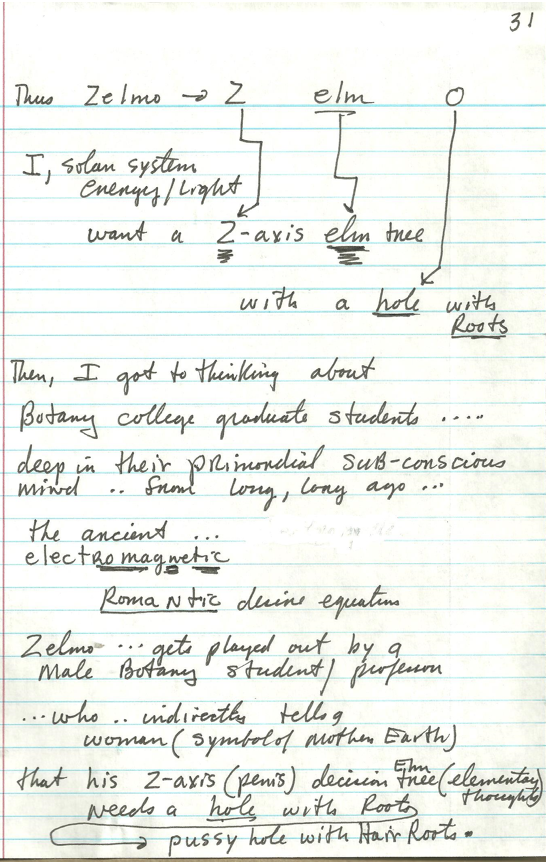 31
Thus Zelmo → Z elm O
I, solar system
energy/Light
want a Z-axis elm tree
with a hole with
Roots
Then, I got to thinking about
Botany college graduate students .....
deep in their primordial sub-conscious
mind .. from long, long ago ...
the ancient ...
electromagnetic
Romantic desire equation
Zelmo ... gets played out by a
Male Botany student/professor
...who .. indirectly tells a
woman (symbol of Mother Earth)
that his Z-axis (penis) decision Elm tree (elementary
thoughts)
needs a hole with Roots
→ pussy hole with Hair Roots.